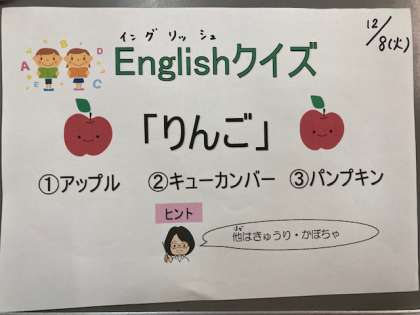 イングリッシュ
Englishクイズ
12/8(火)
A B C D E
「りんご」
①アップル ②キューカンバー ③パンプキン
ヒント
ほか
他はきゅうり・かぼちゃ